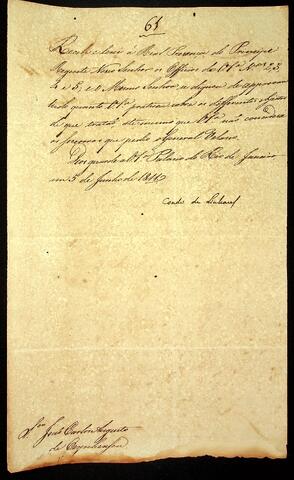 61
Recebi e levei á Real Presença do Principe
Regente Nosso Senhor os Officios de V. S.ª N.os 2, 3,
4 e 5, e o Mesmo Senhor se dignou de approvar
tudo quanto V. S.ª pratica sobre os differentes
de que tratão, até mesmo que V. S.ª não
os soccorros que pedio o General
Deos guarde a V. S.ª Palacio do Rio de Janeiro
em 5 de Junho de 1811
Conde de Linhares
S.r João Carlos Augusto
de Oeynhausen